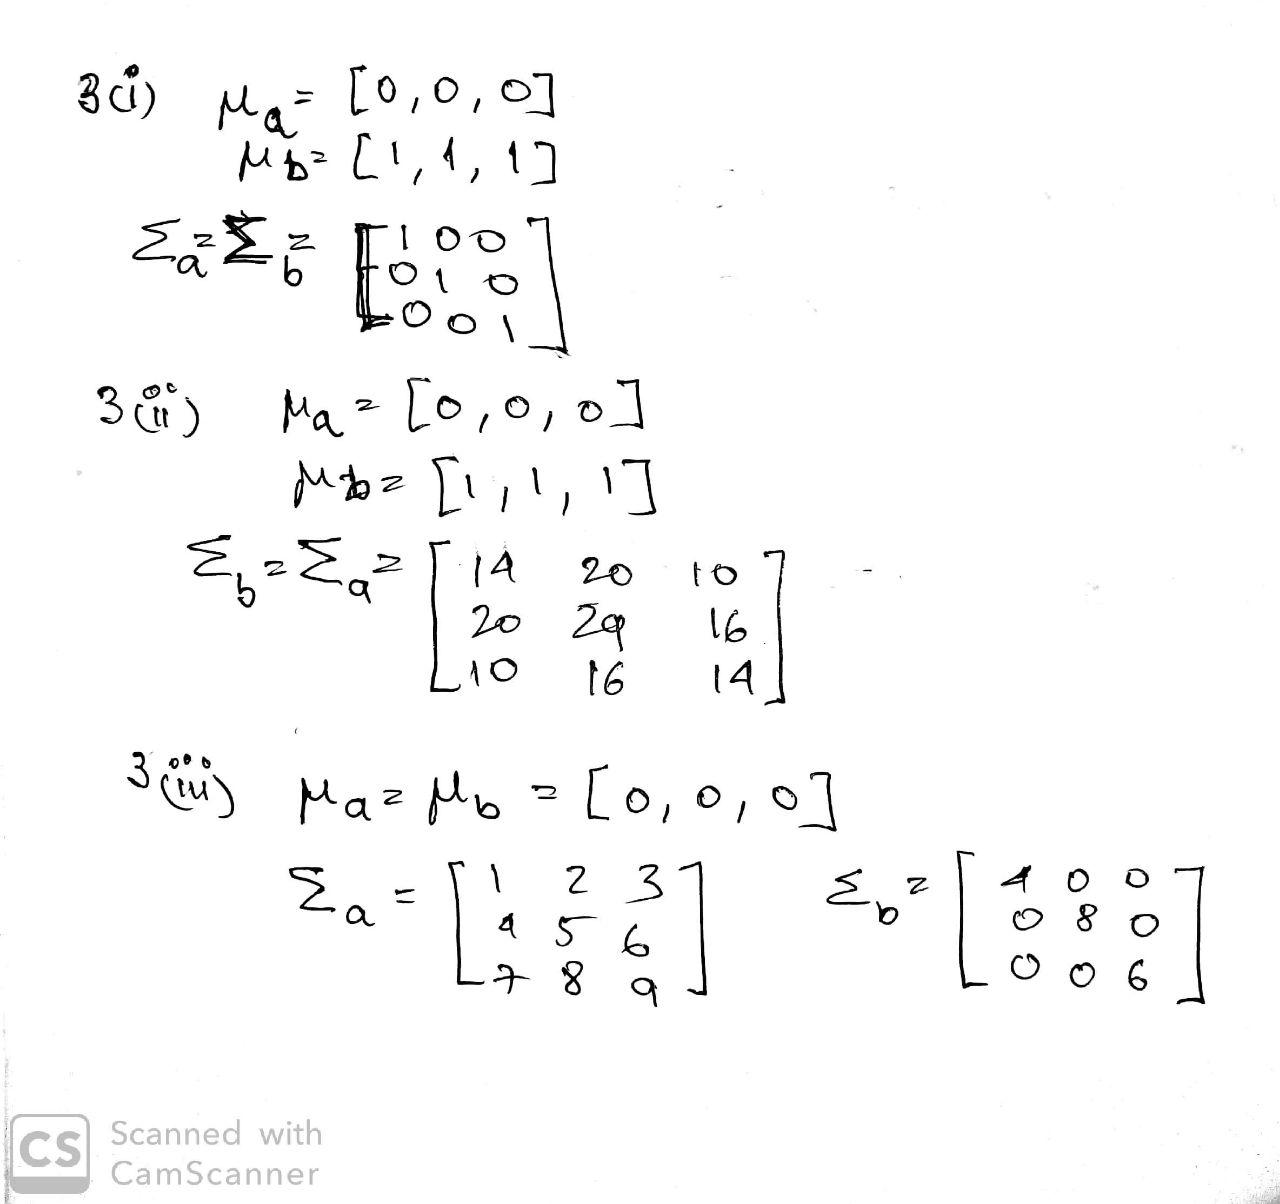 3(i) μa = [0,0,0]
μb = [1,1,1]
Σa = Σb = [1 0 0
0 1 0
0 0 1]
3(ii) μa = [0,0,0]
μb = [1,1,1]
Σb = Σa = [14 20 10
20 29 16
10 16 14]
3(iii) μa = μb = [0,0,0]
Σa = [1 2 3 Σb = [4 0 0
4 5 6 0 8 0
7 8 9] 0 0 6]
CS Scanned with
CamScanner